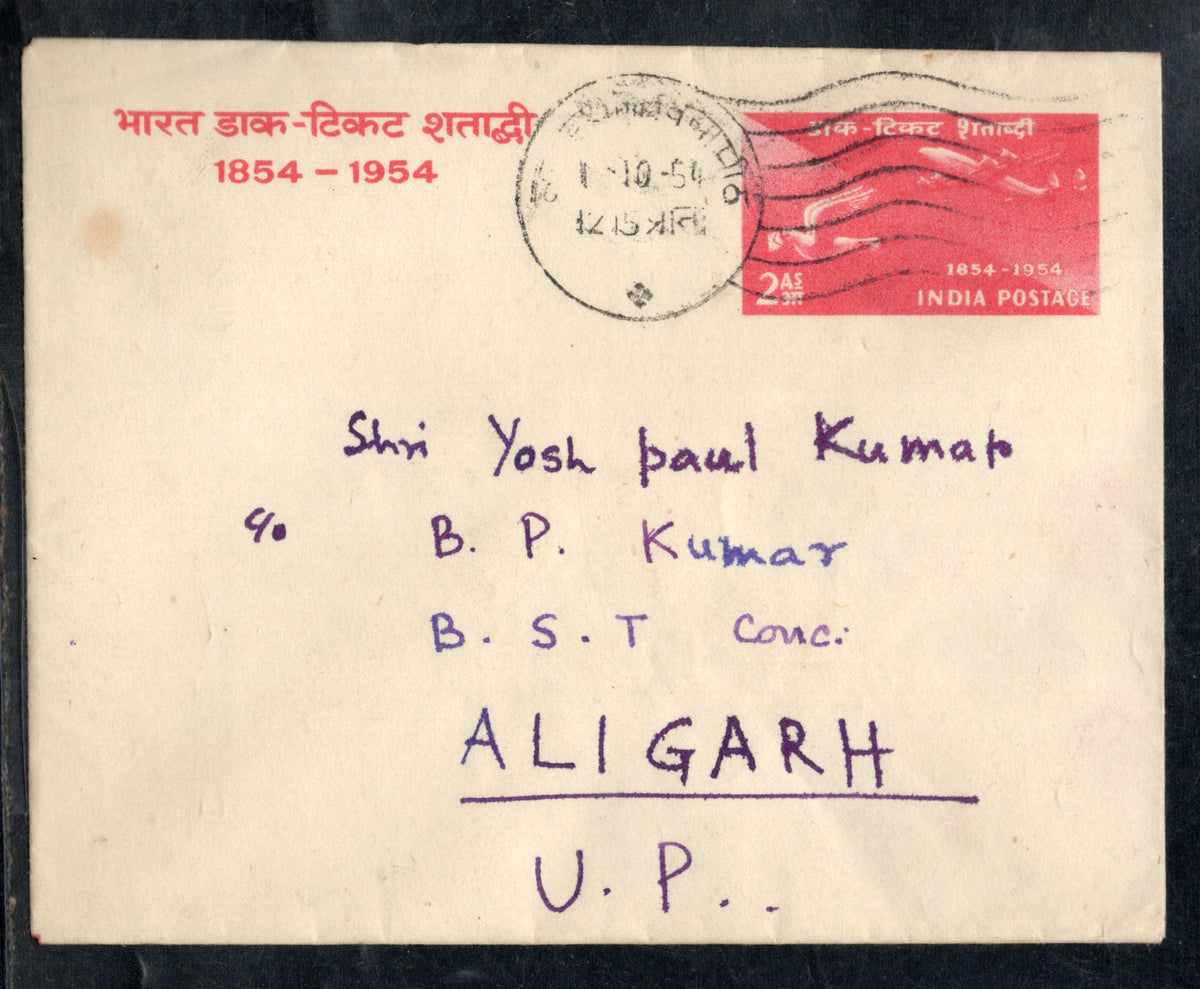 भारत डाक-टिकट शताद्बी
1854 - 1954
1 -10 -54
12 15
डाक-टिकट शताब्दी
1854-1954
2 AS
आ
INDIA POSTAGE
Shri Yosh paul Kumar
c/o B. P. Kumar
B. S. T Conc:
ALIGARH
U. P..